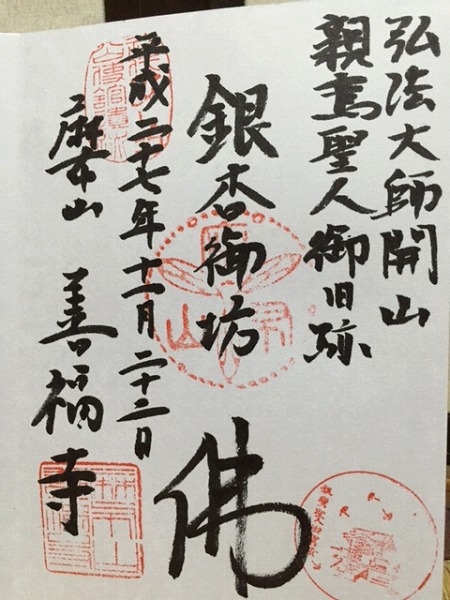 弘法大師開山
親鸞聖人御旧跡
銀杏御坊
佛
平成二十七年十一月二十二日
麻布山 善福寺